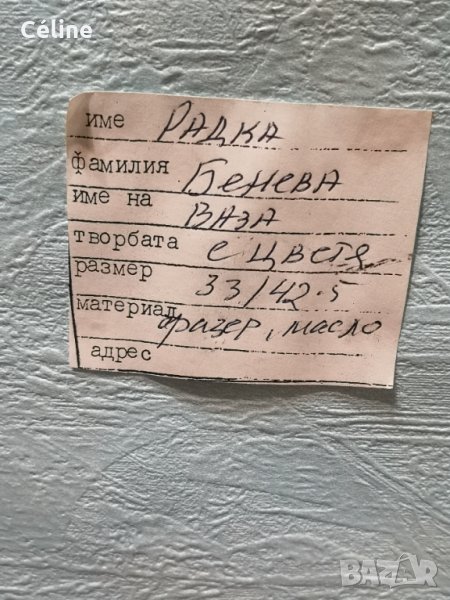 Céline
име РАДКА
фамилия БЕНЕВА
име на ВАЗА
творбата с ЦВЕТЯ
размер 33/42.5
материал фазер, масло
адрес
BAZAR